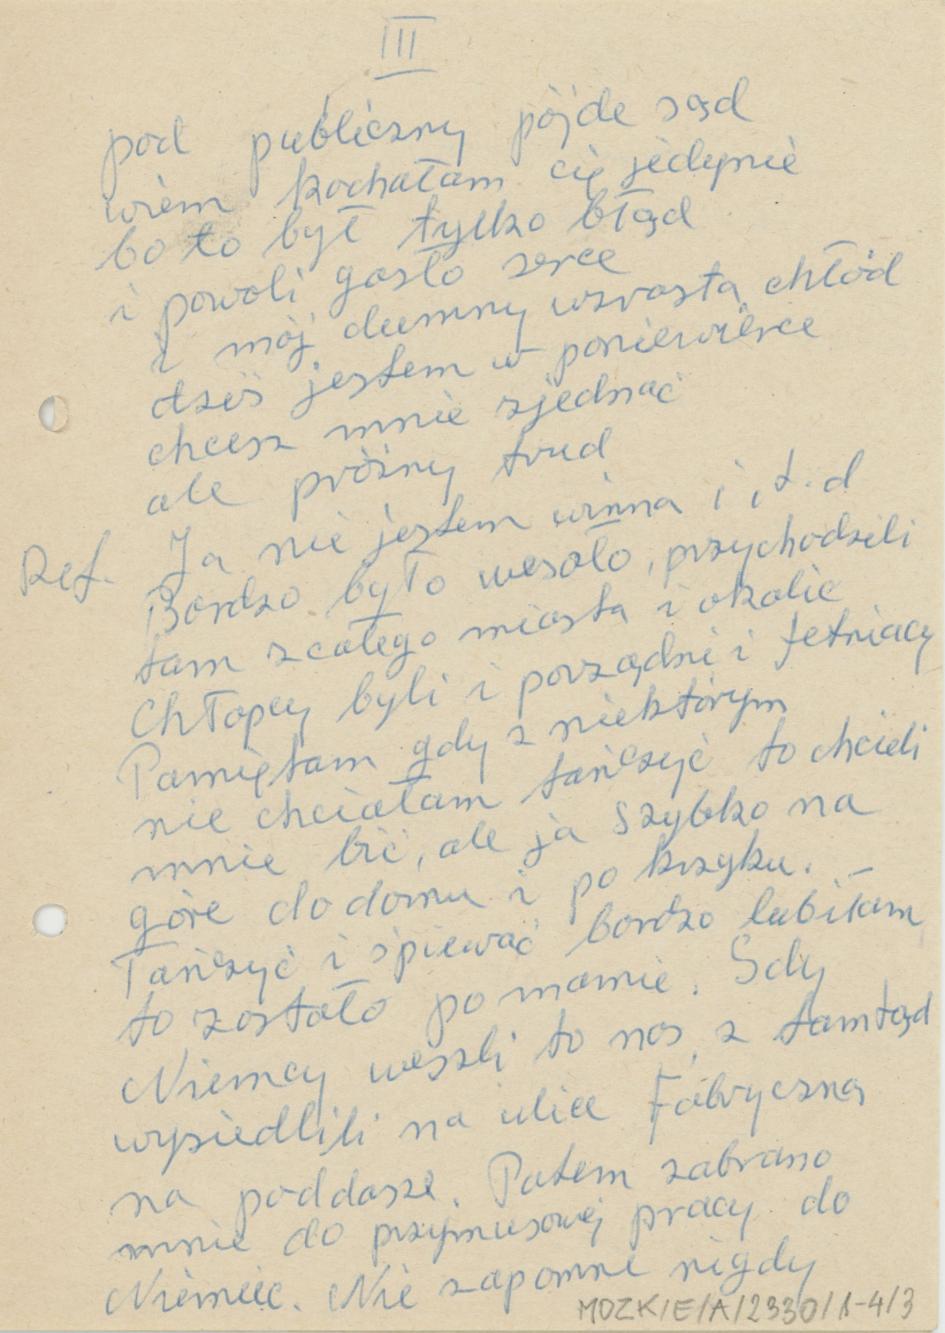 III
pod publiczny pójde sąd
wiem kochałam cię jedynie
bo to był tylko błąd
i powoli gasło serce
i mój dumny wzrasta chłód
dziś jestem w poniewierce
chcesz mnie zjednać
ale próżny trud
Ref. Ja nie jestem winna i i t.d
Bardzo było wesoło, przychodzili
tam z całego miasta i okolic
Chłopcy byli i porządni i tetniacy
Pamiętam gdy z niektórym
nie chciałam tańczyć to chcieli
mnie bić, ale ja szybko na
góre do domu i po krzyku.
Tańczyć i śpiewać bardzo lubiłam
to zostało po mamie. Gdy
Niemcy weszli to nas z tamtąd
wysiedlili na ulice Fabryczną
na poddasze. Potem zabrano
mnie do przymusowej pracy do
Niemiec. Nie zapomne nigdy
MOZK/E/A/2330/1-4/3